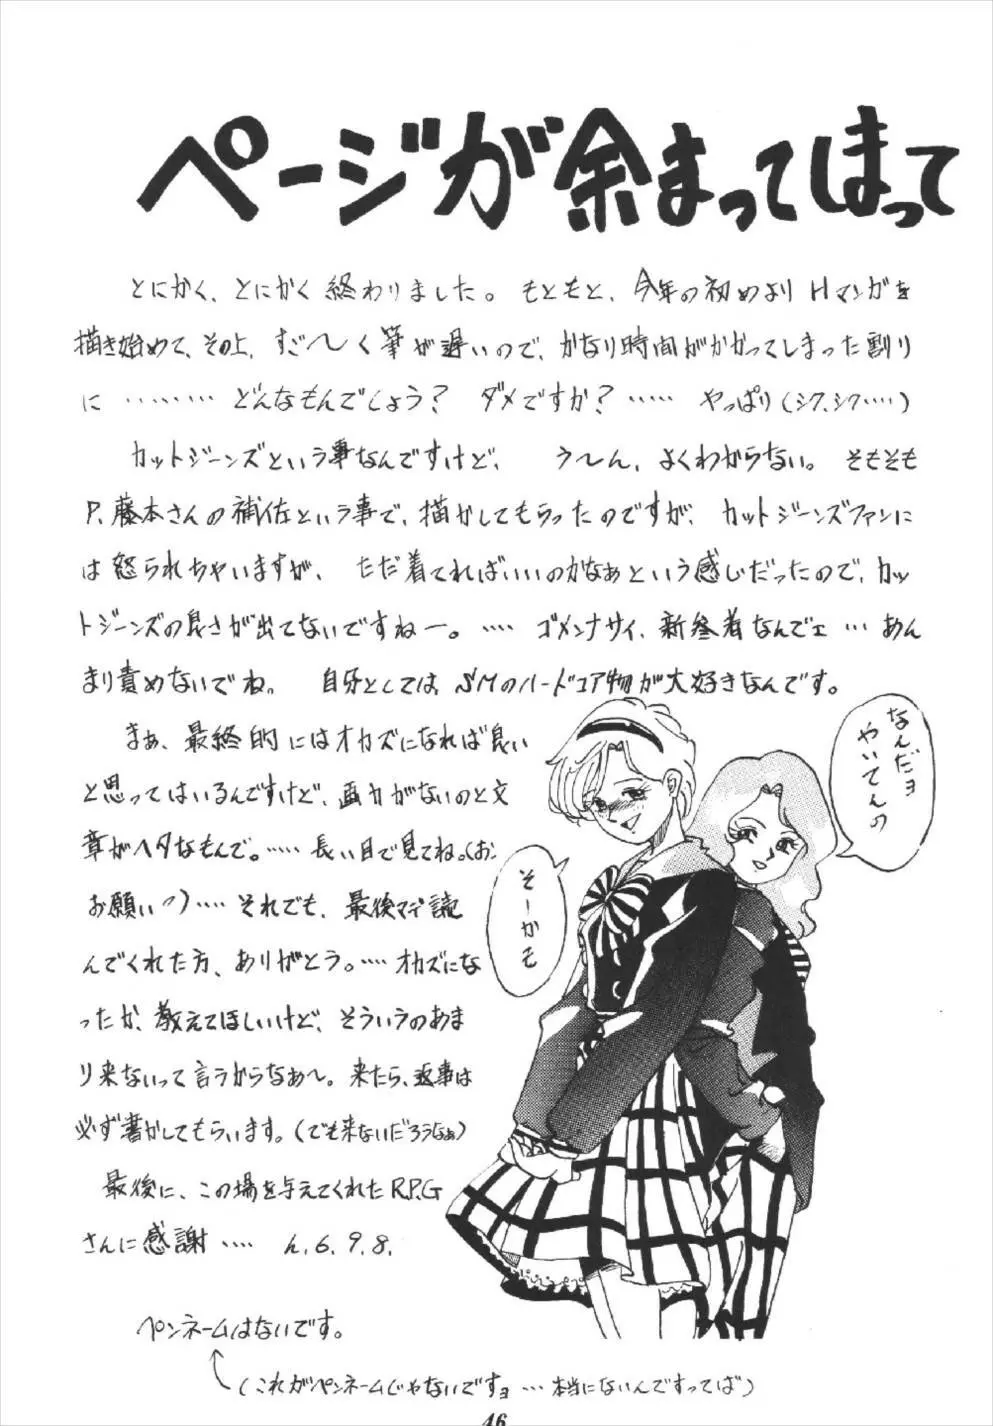 ページが余まってしまって
とにかく、とにかく終わりました。もともと、今年の初めよりHマンガを
描き始めて、その上、すご〜く筆が遅いので、かなり時間がかかってしまった割り
に ……… どんなもんでしょう? ダメですか? ‥‥‥ やっぱり(シク、シク‥‥)
カットジーンズという事なんですけど、 う〜ん、よくわからない。そもそも
P.藤本さんの補佐という事で、描かしてもらったのですが、カットジーンズファンに
は怒られちゃいますが、 ただ着てればいいのかなぁという感じだったので、カッ
トジーンズの良さが出てないですねー。‥‥ ゴメンナサイ、新参者なんでェ … あん
まり責めないでね。 自分としては、SMのハードコア物が大好きなんです。
まぁ、最終的にはオカズになれば良い
と思ってはいるんですけど、画力がないのと文
章がヘタなもんで。‥‥‥ 長い目で見てね。(お
お願いっ)‥‥‥ それでも、最後マデ読
んでくれた方、ありがとう。‥‥ オカズにな
ったか、教えてほしいけど、そういうのあま
り来ないって言うからなあ〜。来たら、返事は
必ず書かしてもらいます。(でも来ないだろうなぁ)
最後に、この場を与えてくれたR.P.G
さんに感謝 ‥‥ h.6.9.8.
なんだョ
やいてんの
そーかも
ペンネームはないです。
(これがペンネームじゃないですョ … 本当にないんですってば)
46